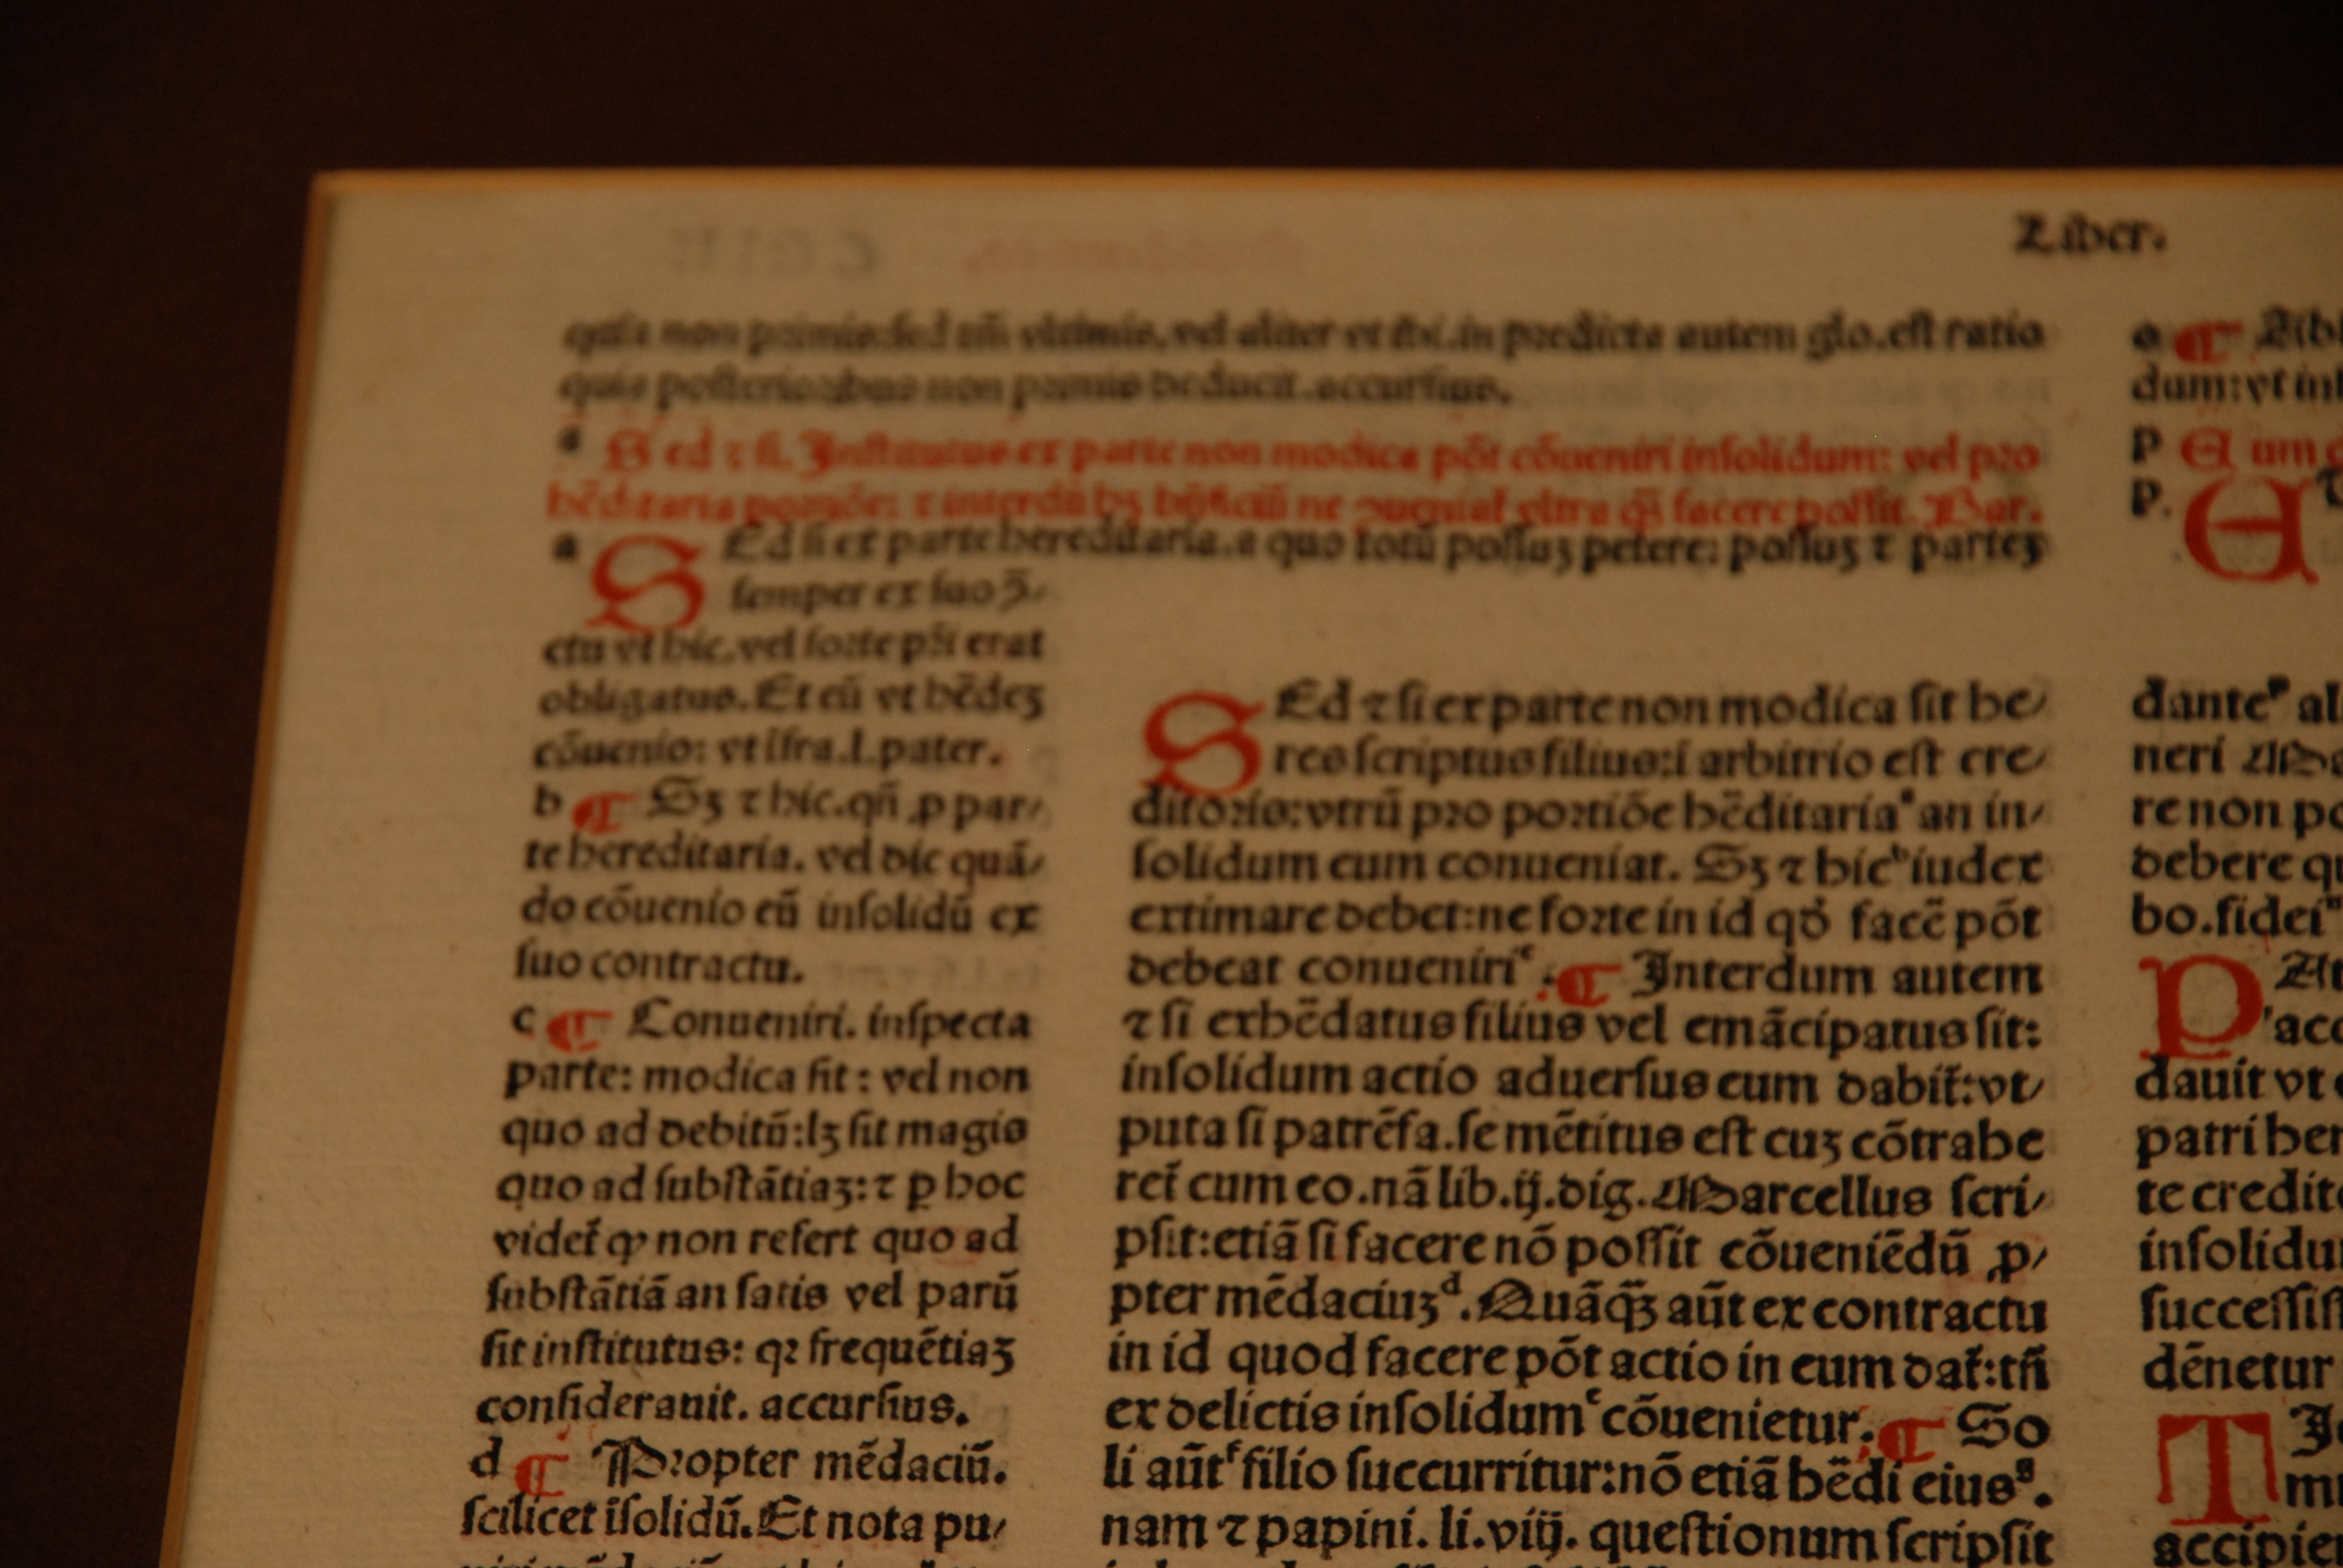 Liber.
quia non primis:sed tm̄ vltimis.vel aliter vt ibi.in predicta autem glo.est ratio
quia posterioribus non primis deducit.accursius.
a Sed ⁊ si. Institutus ex parte non modica pōt cōueniri insolidum: vel pro
hēditaria portiōe: ⁊ interdū hꝫ bn̄ficiū ne ultra facere possit. Bar.
a SEd si ex parte hereditaria.a quo totū possuꝫ petere: possuꝫ ⁊ parteꝫ
semper ex suo ꝯ̄⸗
ctu vt hic.vel forte pr̄i erat
obligatus. Et eū vt hēdeꝫ
cōuenio: vt īfra.l.pater.
b ¶ Sꝫ ⁊ hic.qn̄ ꝓ par⸗
te hereditaria. vel dic quā⸗
do cōuenio eū insolidū ex
suo contractu.
c ¶ Conueniri. inspecta
parte: modica sit: vel non
quo ad debitū:lꝫ sit magis
quo ad substātiaꝫ: ⁊ ꝑ hoc
videt̄ ꝙ non refert quo ad
substātiā an satis vel parū
sit institutus: qꝛ frequētiaꝫ
considerauit. accursius.
d ¶ Propter mēdaciū.
scilicet īsolidū. Et nota pu⸗
SEd ⁊ si ex parte non modica sit he⸗
res scriptus filius:ī arbitrio est cre⸗
ditoris:vtrū pro portiōe hēditariaᵃ an in⸗
solidum eum conueniat. Sꝫ ⁊ hicᵇ iudex
extimare debet:ne forte in id qd̓ facē pōt
debeat conueniriᶜ. ¶ Interdum autem
⁊ si exhēdatus filius vel emācipatus sit:
insolidum actio aduersus eum dabit̄:vt⸗
puta si patrēfa.se mētitus est cuꝫ cōtrahe
ret̄ cum eo.nā lib.ij.dig. Marcellus scri⸗
psit:etiā si facere nō possit cōueniēdū ꝓ⸗
pter mēdaciuꝫᵈ. Quāq̄ꝫ aūt ex contractu
in id quod facere pōt actio in eum dat̄:tn̄
ex delictis insolidumᵉ cōuenietur. ¶ So
li aūtᶠ filio succurritur:nō etiā hēdi eiusᵍ.
nam ⁊ papini. li.viij. questionum scripsit
dum:vt
p Eum
p.
dante al
neri
re non
debere
bo.fidei
dauit vt
patri
te
insolidu
dēnetur
T